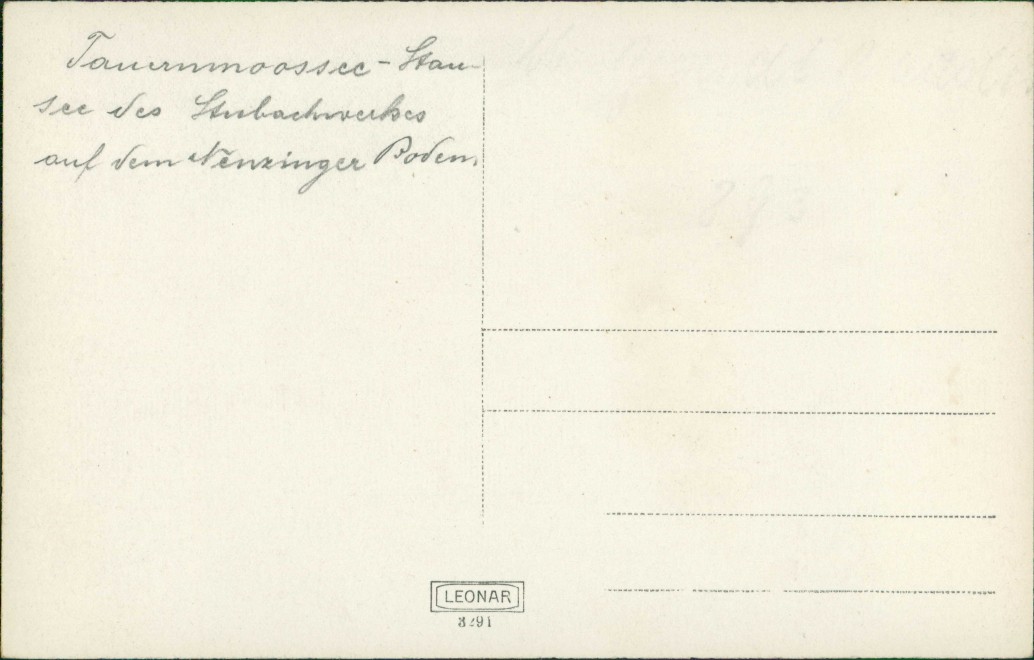 Tauernmoossee - Stau-
see des Stubachwerkes
auf dem Nenzinger Boden.
LEONAR